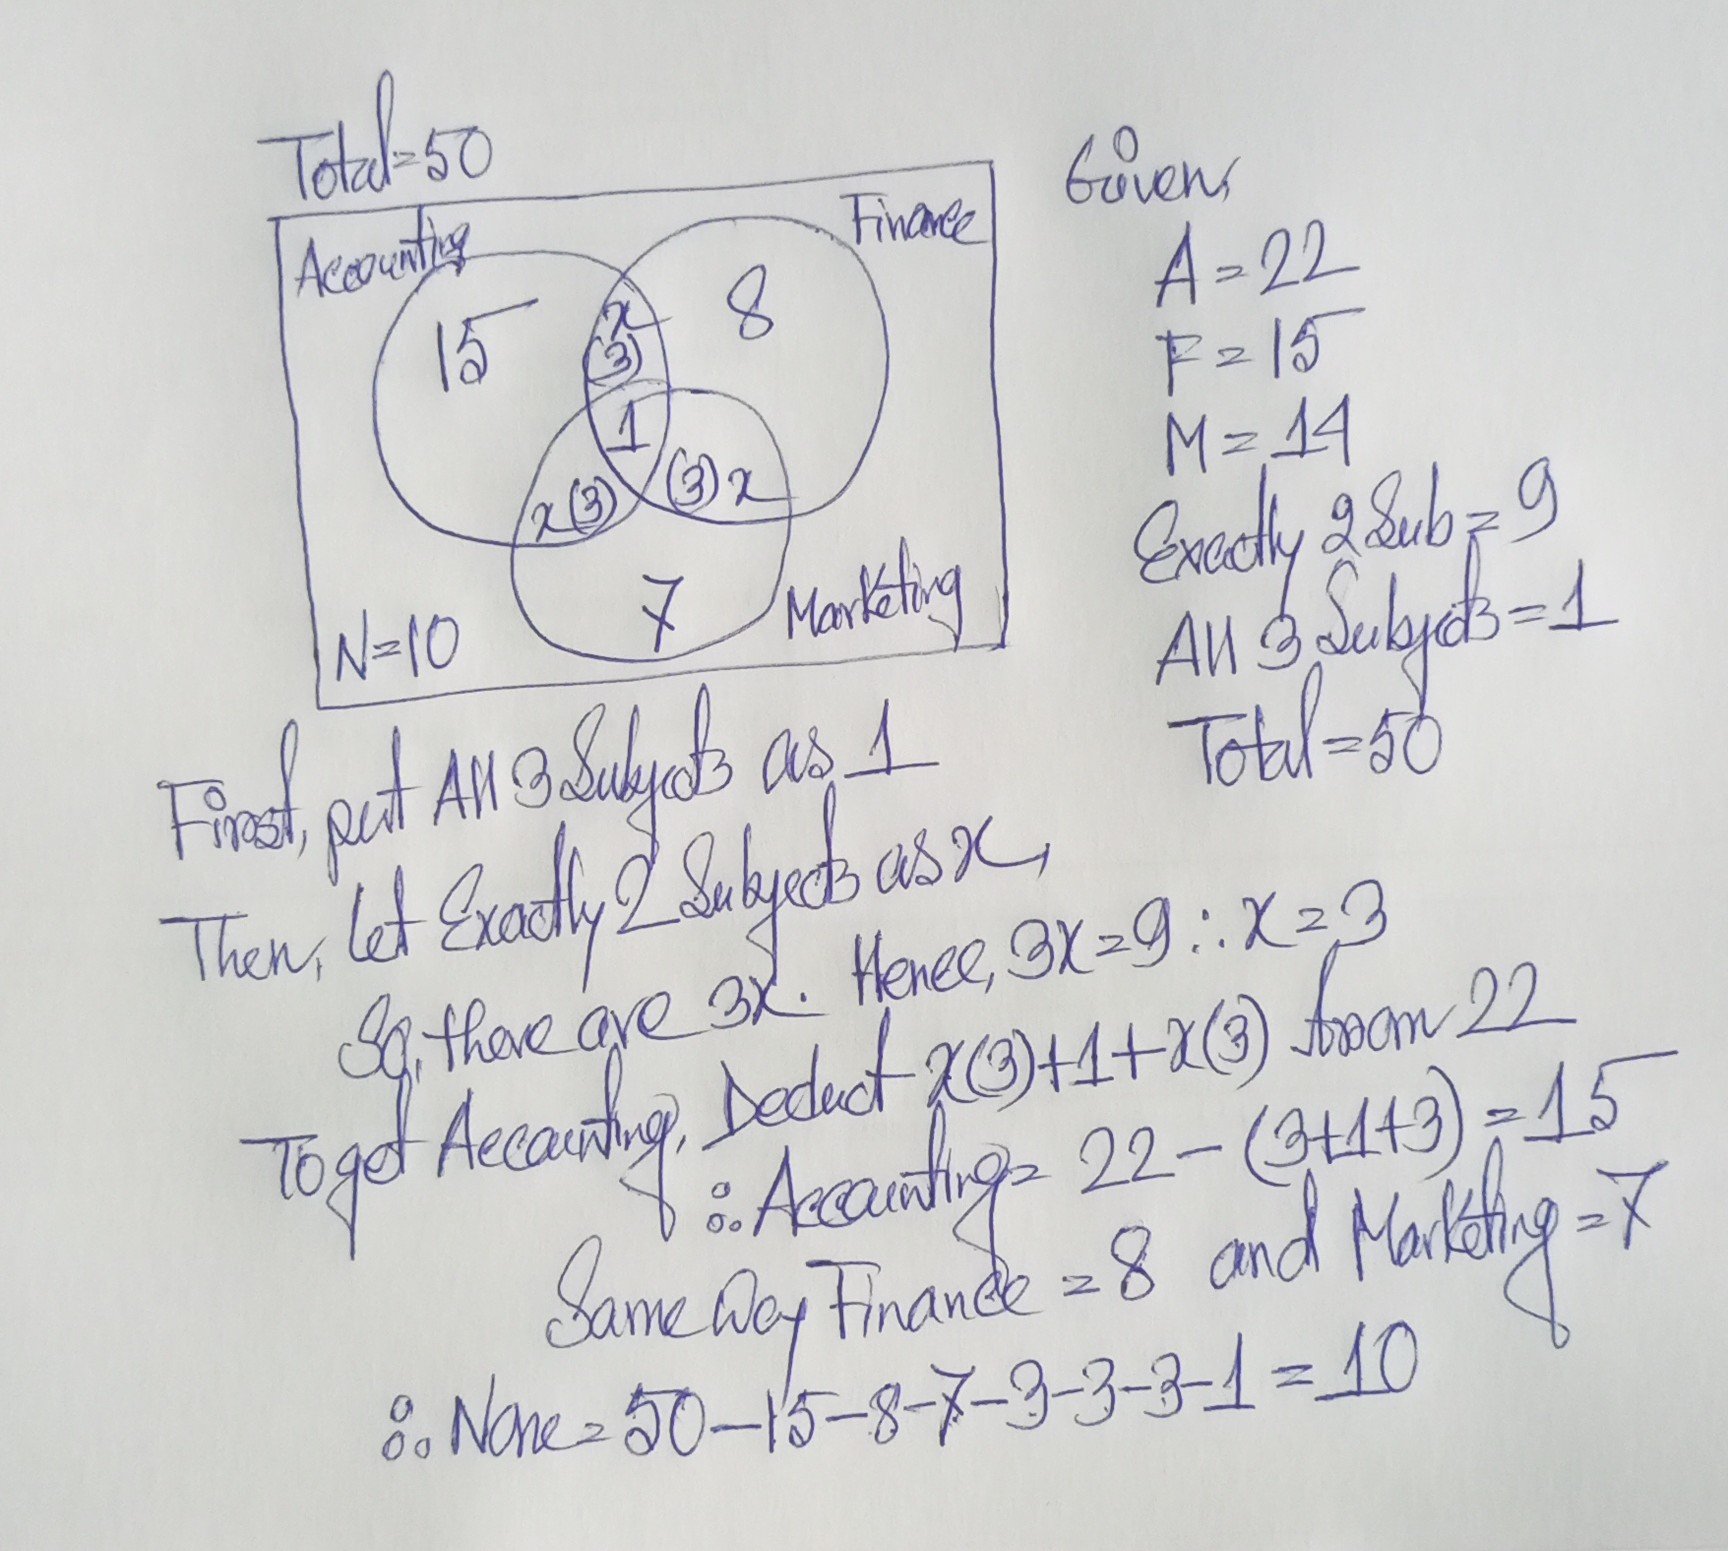 Total=50
Accounting
Finance
15
x
(3)
8
1
x(3)
(3)x
7
Marketing
N=10
Given,
A=22
F=15
M=14
Exactly 2 Sub=9
All 3 Subjects=1
Total=50
First, put All 3 Subjects as 1
Then, let Exactly 2 Subjects as x,
So, there are 3x. Hence, 3x=9 ∴ x=3
To get Accounting, Deduct x(3)+1+x(3) from 22
∴ Accounting= 22-(3+1+3)=15
Same Way Finance=8 and Marketing=7
∴ None=50-15-8-7-3-3-3-1=10